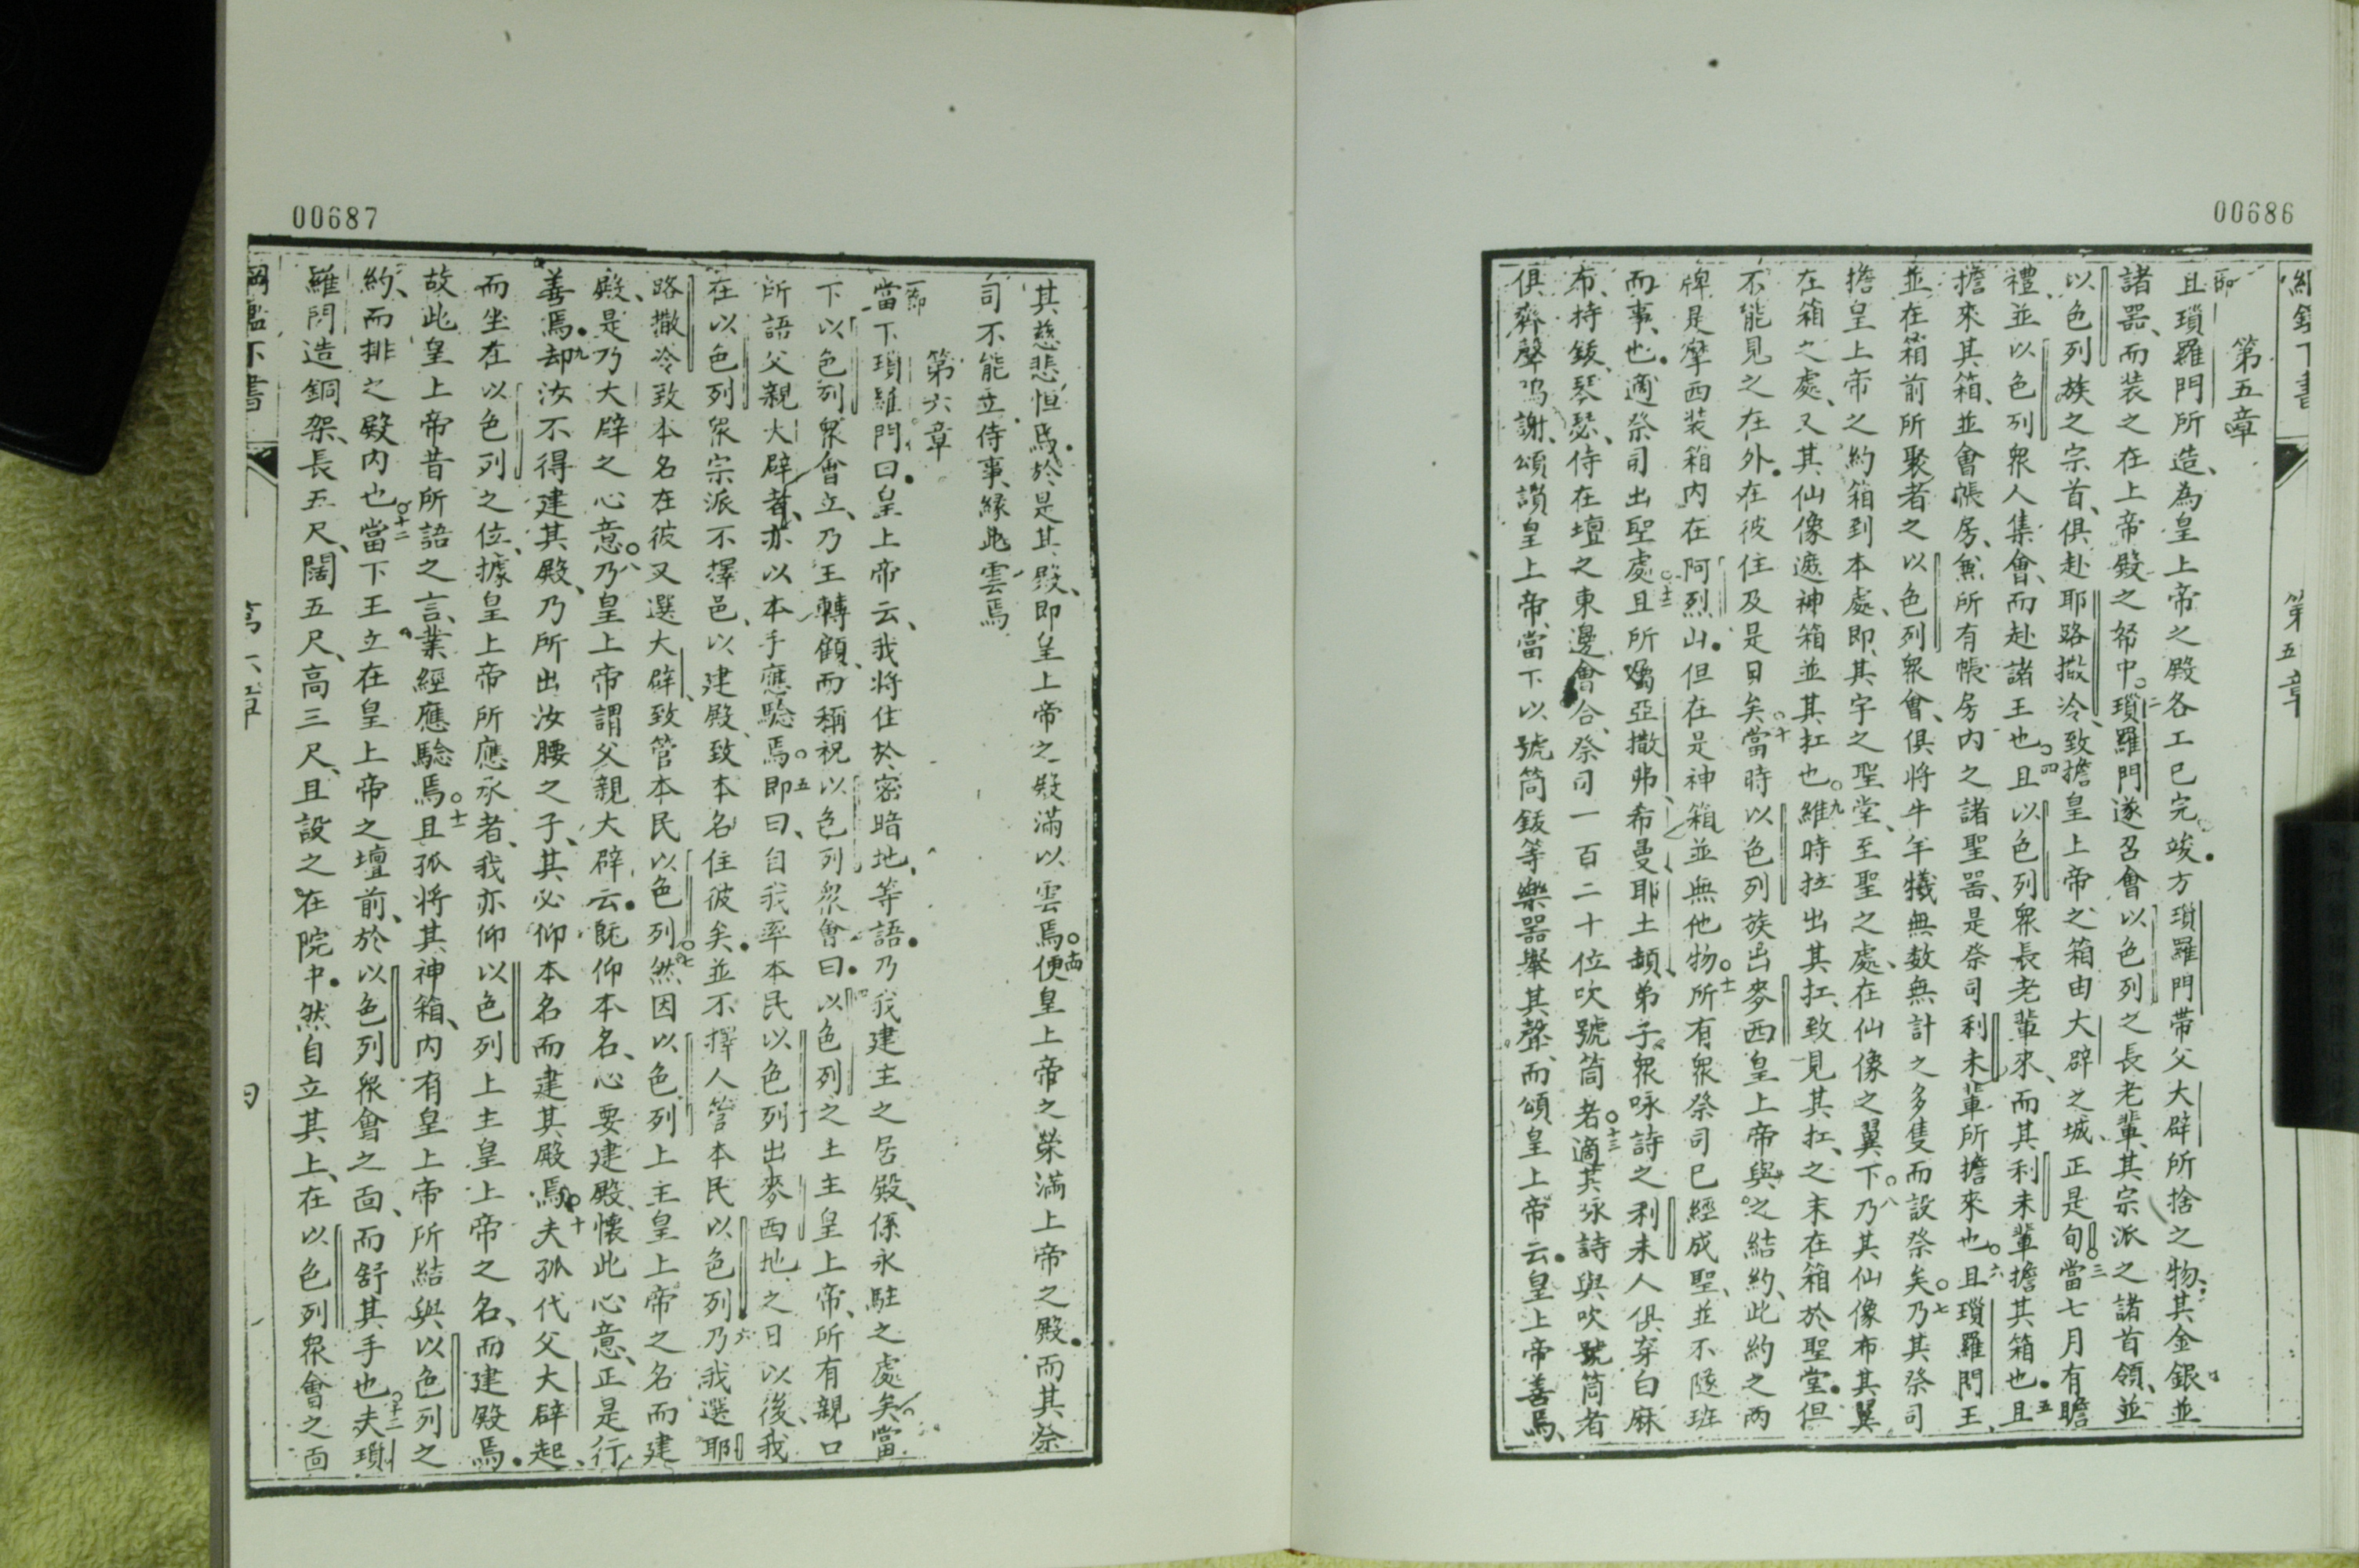 00686
第五章
第五章
一節且瑣羅門所造、為皇上帝之殿各工已完竣。方瑣羅門帶父大辟所捨之物、其金銀並
諸器、而装之在上帝殿之帑中。二瑣羅門遂召會以色列之長老輩、其宗派之諸首領、並
以色列族之宗首、俱赴耶路撒冷、致擔皇上帝之箱由大辟之城、正是旬。三當七月有瞻
禮並以色列眾人集會、而赴諸王也。四且以色列眾長老輩來、而其利未輩擔其箱也。五且
擔來其箱、並會帳房、無所有帳房内之諸聖噐、是祭司利未輩所擔來也。六且瑣羅門王、
並在箱前所聚者之以色列眾會、俱将牛羊犧無数無計之多隻而設祭矣。七乃其祭司
擔皇上帝之約箱到本處、即其宇之聖堂、至聖之處、在仙像之翼下。八乃其仙像布其翼
在箱之處、又其仙像遮神箱並其扛也。九維時拉出其扛、致見其扛、之末在箱於聖堂。但
不能見之在外。在彼住及是日矣。十當時以色列族出麥西皇上帝與之結約、此約之兩
牌是摩西装箱内在阿烈山。但在是神箱並無他物。十一所有眾祭司已經成聖、並不隨班
而事也。適祭司出聖處。十二且所屬亞撒弗、希曼、耶土頓、弟子、眾咏詩之利未人俱穿白麻
布、持鈸、琴瑟、侍在壇之東邊會合、祭司一百二十位吹號筒者。十三適其咏詩與吹號筒者
俱齊聲嗚謝、頌讃皇上帝、當下以號筒鈸等樂噐舉其聲、而頌皇上帝云。皇上帝善焉、
00687
其慈悲恒焉。於是其殿、即皇上帝之殿滿以雲焉。十四便皇上帝之榮滿上帝之殿。而其祭
司不能立侍事、緣此雲焉
第六章
一節當下瑣羅門曰。皇上帝云、我將住於密暗地、等語。乃我建主之居殿、係永駐之處矣。當
下以色列眾會立、乃王轉顧、而稱祝以色列眾會曰。四以色列之主主皇上帝、所有親口
所語父親大辟者、亦以本手應騐焉。五即曰、自我率本民以色列出麥西地之日以後、我
在以色列眾宗派不擇邑、以建殿、致本名住彼矣。並不擇人管本民以色列。六乃我選耶
路撒冷致本名在彼又選大辟、致管本民以色列。七然因以色列上主皇上帝之名而建
殿、是乃大辟之心意。八乃皇上帝謂父親大辟云。既仰本名、心要建殿、懷此心意、正是行
善焉。九却汝不得建其殿、乃所出汝腰之子、其必仰本名而建其殿焉。十夫孤代父大辟起、
而坐在以色列之位、據皇上帝所應承者、我亦仰以色列上主皇上帝之名、而建殿焉。
故此皇上帝昔所語之言、業經應騐焉。十一且孤將其神箱、内有皇上帝所結與以色列之
約、而排之殿内也。十二當下王立在皇上帝之壇前、於以色列眾會之面、而舒其手也。十三夫瑣
羅門造銅架、長五尺、闊五尺、高三尺、且設之在院中。然自立其上、在以色列眾會之面